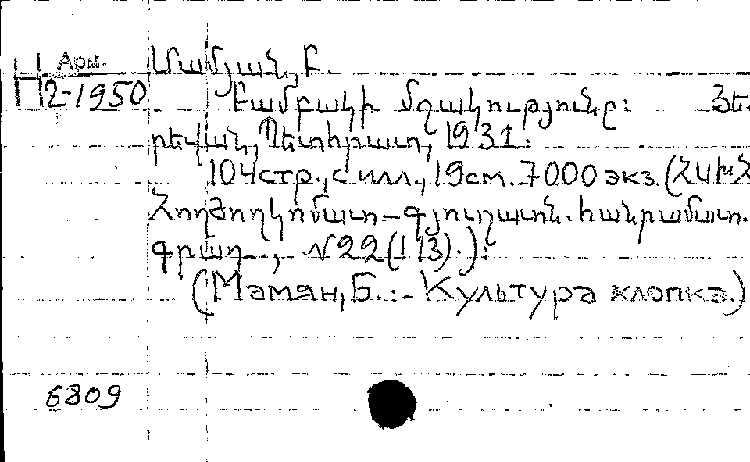 Арм.
П 2-1950
Մամյան, Բ.
Բամբակի մշակությունը: Յե-
րեվան, Պետհրատ, 1931.
104 стр., с илл., 19 см. 7000 экз. (ՀԱԽՀ
Հողժողկոմատ – գյուղատն. հանրամատ.
գրադ., №22(113).):
(Мамян, Б.:- Культура хлопка.)
6809